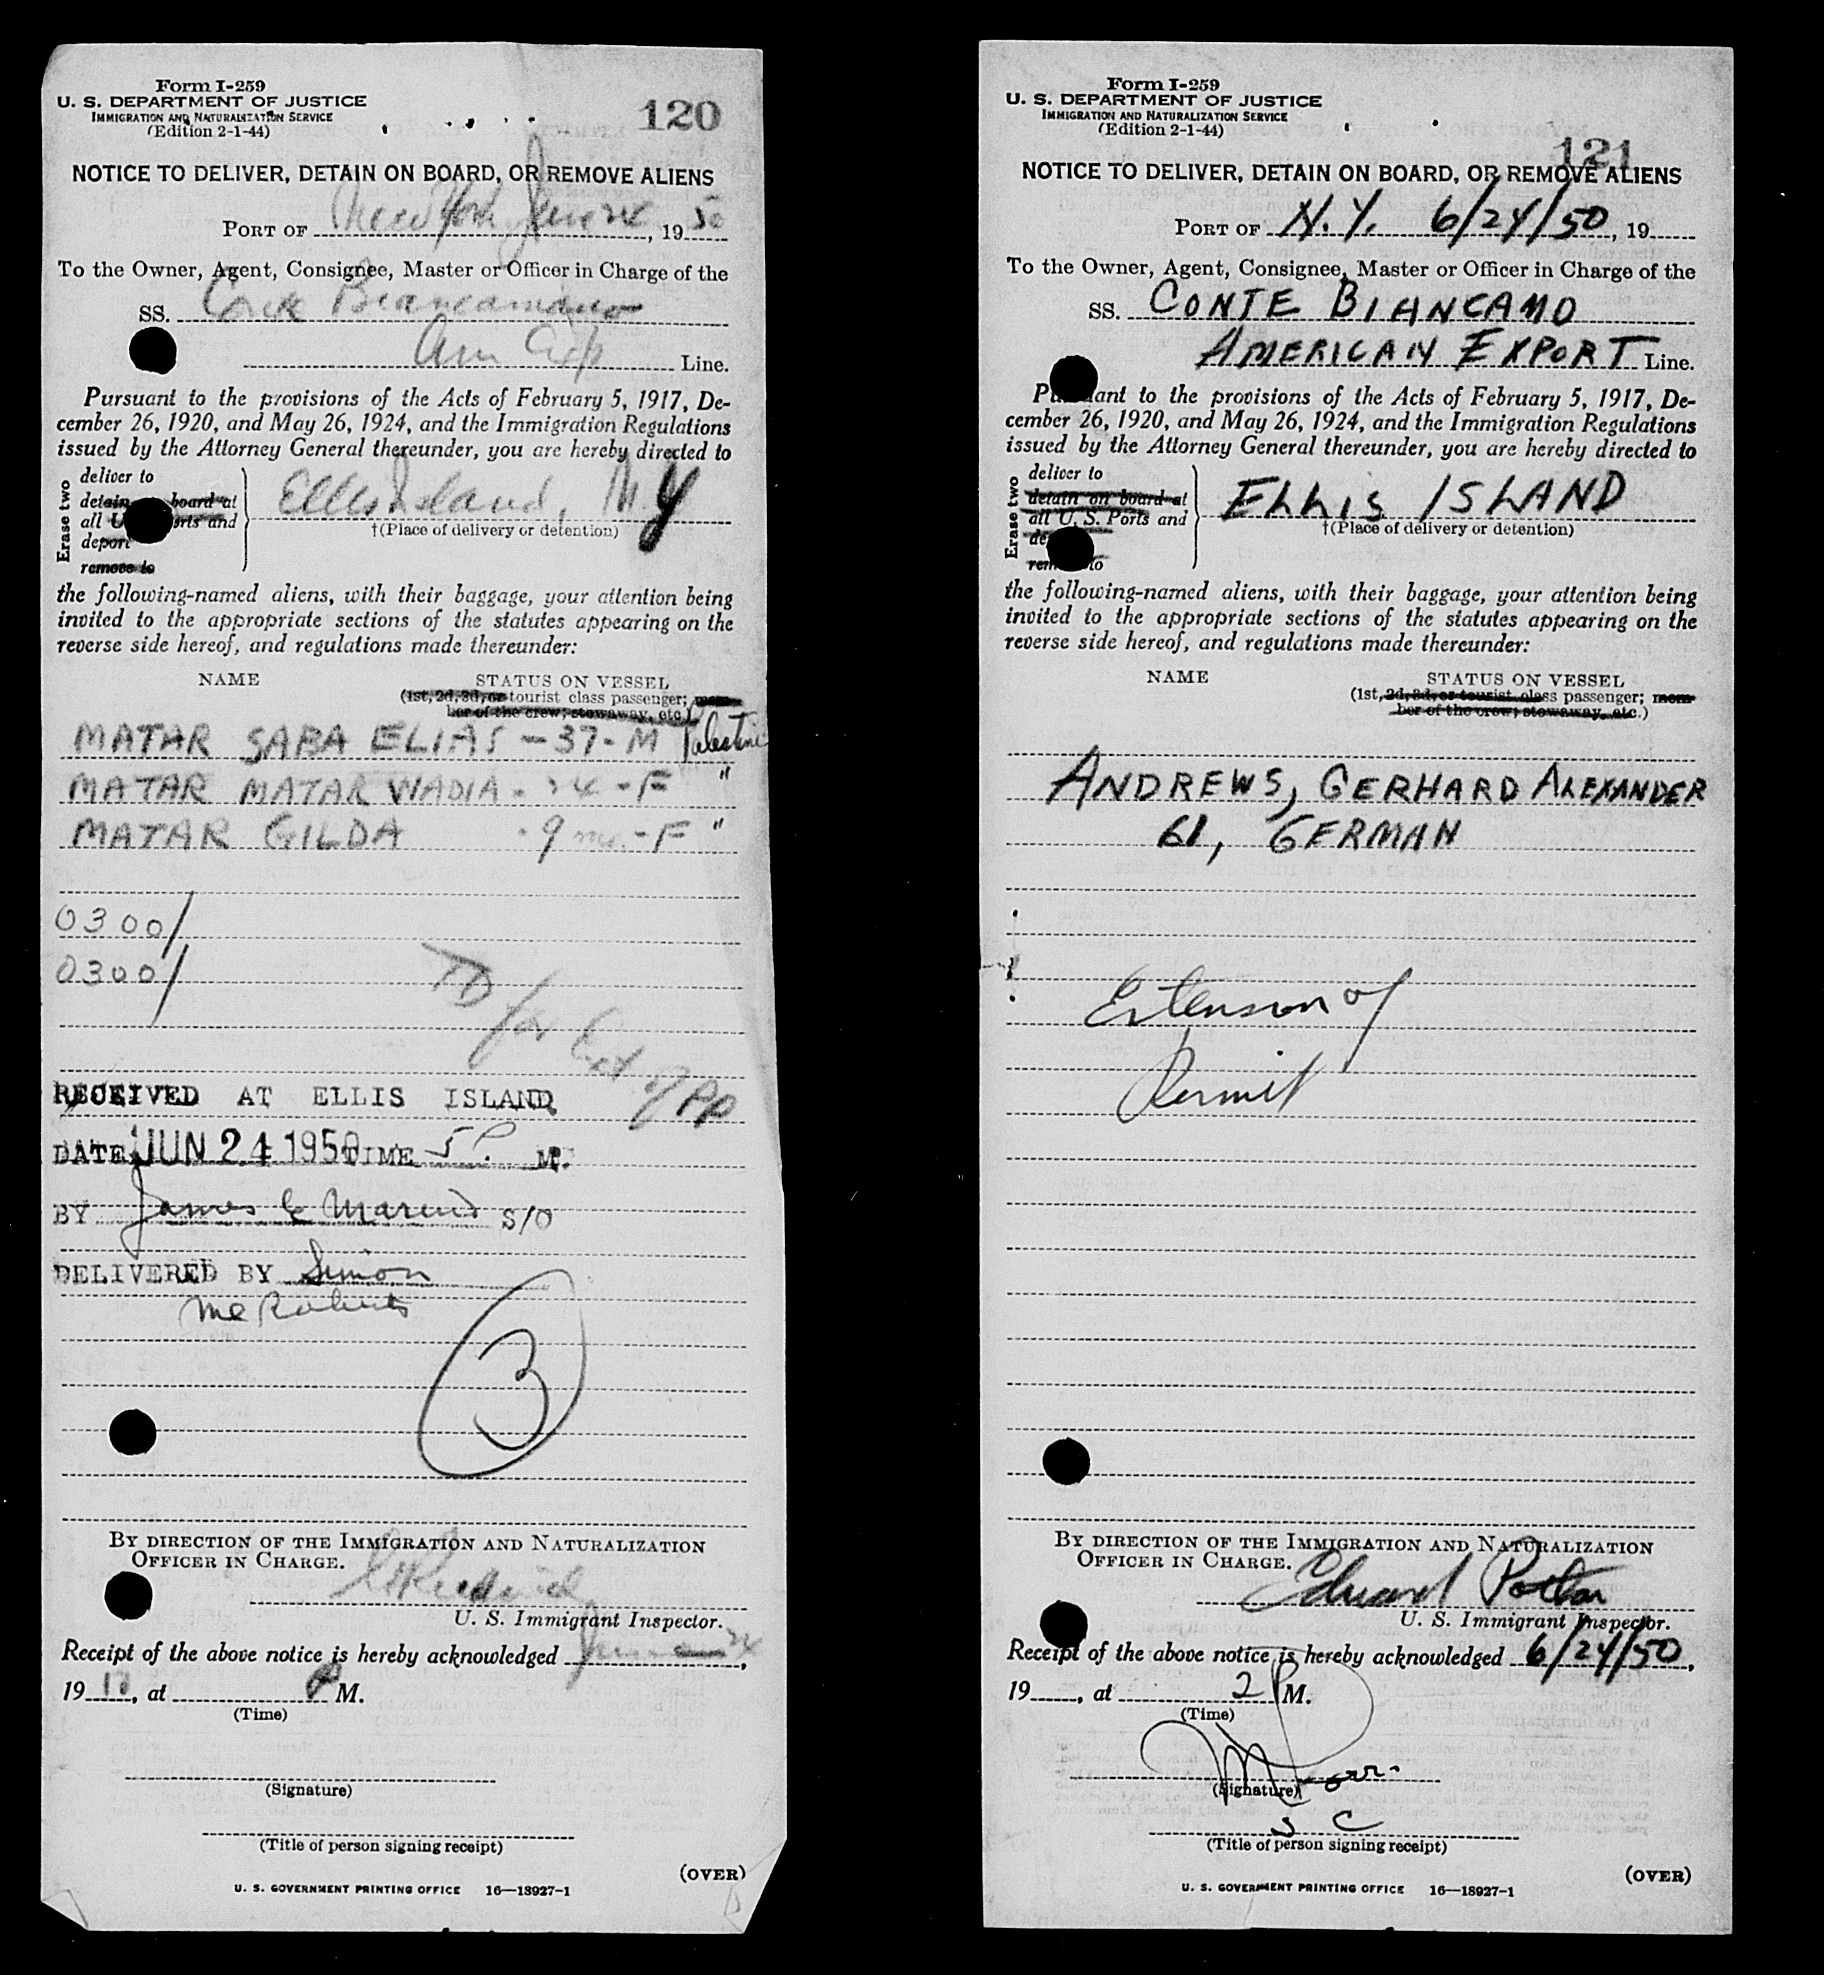 Form I-259
U. S. DEPARTMENT OF JUSTICE
IMMIGRATION AND NATURALIZATION SERVICE
(Edition 2-1-44)
120
NOTICE TO DELIVER, DETAIN ON BOARD, OR REMOVE ALIENS
PORT OF New York June 24, 19 50
To the Owner, Agent, Consignee, Master or Officer in Charge of the
SS. Conte Biancamano
Am Exp Line.
Pursuant to the provisions of the Acts of February 5, 1917, De-
cember 26, 1920, and May 26, 1924, and the Immigration Regulations
issued by the Attorney General thereunder, you are hereby directed to
Erase two
deliver to
detain board at
all U ports and
deport
remove to
Ellis Island, N Y
†(Place of delivery or detention)
the following-named aliens, with their baggage, your attention being
invited to the appropriate sections of the statutes appearing on the
reverse side hereof, and regulations made thereunder:
NAME STATUS ON VESSEL
(1st, 2d, 3d, or tourist class passenger; mem-
ber of the crew; stowaway, etc.)
MATAR SABA ELIAS - 37 - M Palestine
MATAR MATAR WADIA - 24 - F "
MATAR GILDA - 9 mo. - F "
0300/
0300/
TD for Ext of PP
RECEIVED AT ELLIS ISLAND
DATE JUN 24 1950 TIME 5 P. M.
BY James E S/O
DELIVERED BY Simon
McRoberts
3
BY DIRECTION OF THE IMMIGRATION AND NATURALIZATION
OFFICER IN CHARGE.
U. S. Immigrant Inspector.
Receipt of the above notice is hereby acknowledged June 24,
19 , at P M.
(Time)
(Signature)
(Title of person signing receipt)
(OVER)
U. S. GOVERNMENT PRINTING OFFICE 16—18927-1
Form I-259
U. S. DEPARTMENT OF JUSTICE
IMMIGRATION AND NATURALIZATION SERVICE
(Edition 2-1-44)
121
NOTICE TO DELIVER, DETAIN ON BOARD, OR REMOVE ALIENS
PORT OF N.Y. 6/24/50, 19
To the Owner, Agent, Consignee, Master or Officer in Charge of the
SS. CONTE BIANCAMO
AMERICAN EXPORT Line.
Pursuant to the provisions of the Acts of February 5, 1917, De-
cember 26, 1920, and May 26, 1924, and the Immigration Regulations
issued by the Attorney General thereunder, you are hereby directed to
Erase two
deliver to
detain on board at
all U. S. Ports and
de
rem to
ELLIS ISLAND
†(Place of delivery or detention)
the following-named aliens, with their baggage, your attention being
invited to the appropriate sections of the statutes appearing on the
reverse side hereof, and regulations made thereunder:
NAME STATUS ON VESSEL
(1st, 2d, 3d, or tourist class passenger; mem-
ber of the crew; stowaway, etc.)
ANDREWS, GERHARD ALEXANDER
61, GERMAN
Extension of
Permit
BY DIRECTION OF THE IMMIGRATION AND NATURALIZATION
OFFICER IN CHARGE.
Edward
U. S. Immigrant Inspector.
Receipt of the above notice is hereby acknowledged 6/24/50,
19 , at 2 P M.
(Time)
(Signature)
S C
(Title of person signing receipt)
(OVER)
U. S. GOVERNMENT PRINTING OFFICE 16—18927-1